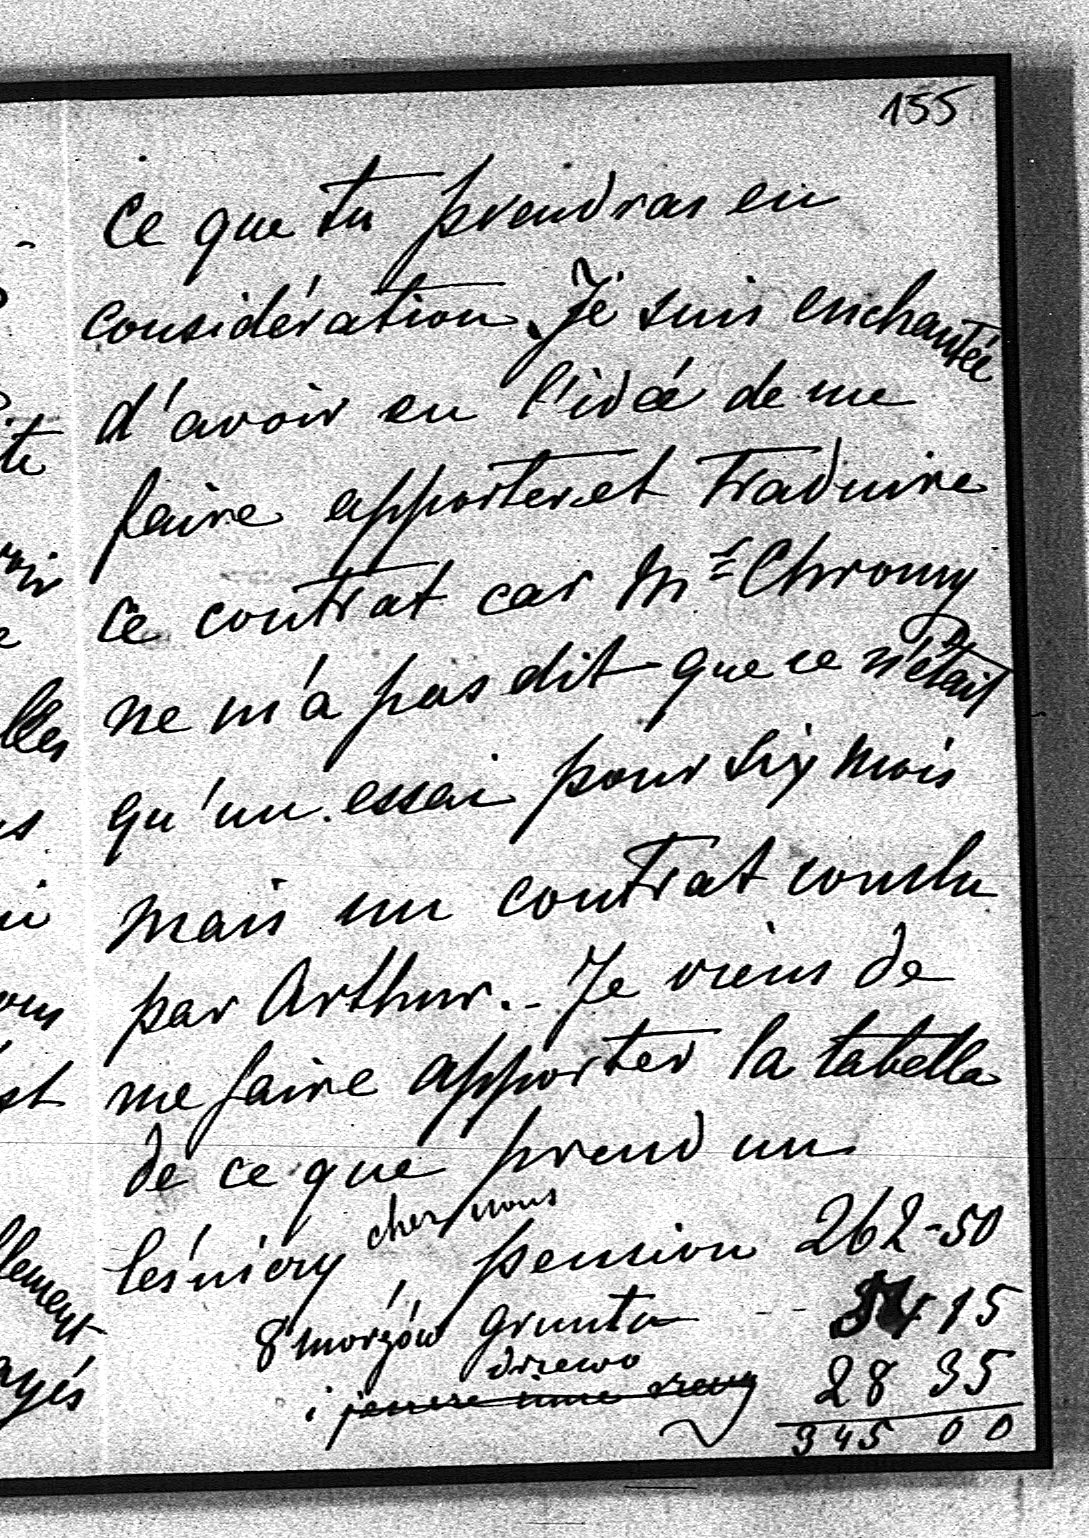 155
ce que tu prendras en
considération. Je suis enchantée
d'avoir eu l'idée de me
faire apporter et traduire
ce contrat car Mr Chromy
ne m'a pas dit que ce n'était
qu'un essai pour six mois
mais un contrat conclu
par Arthur. - Je viens de
me faire apporter la tabella
de ce que prend un
leśniczy chez nous pension 262-50
8 morgów gruntu -- 54 15
i drzewo 28 35
345 00